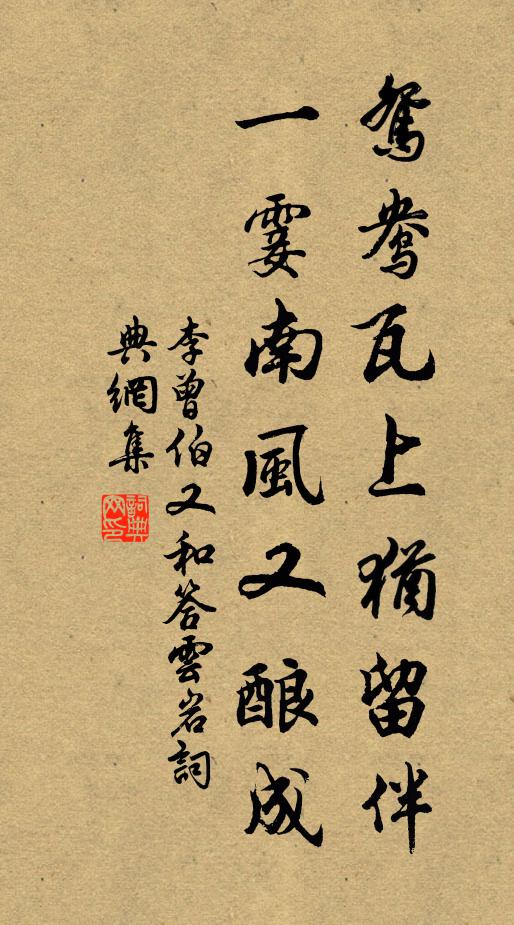 鴛鴦瓦上猶留伴
一霎南風又酿成
李曾伯又和答雲岩詞
典網集
詞典网印